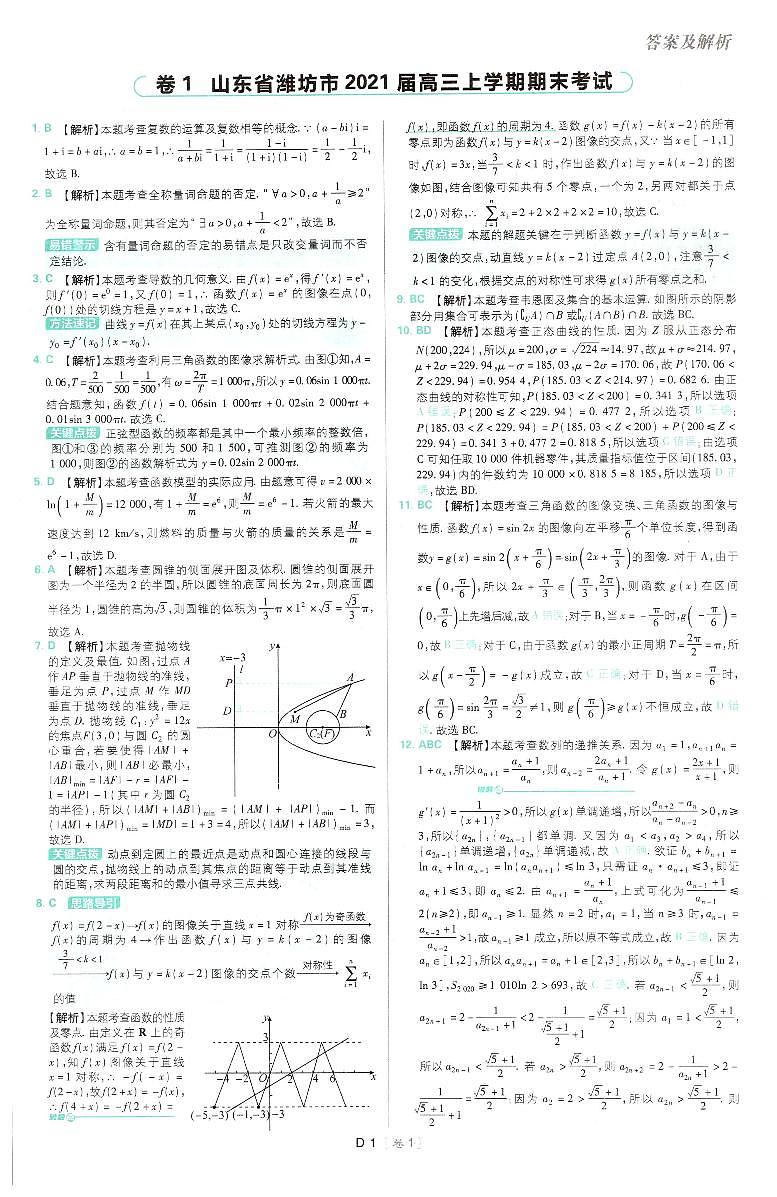 答案及解析
卷1 山东省潍坊市2021届高三上学期期末考试
1. B 【解析】本题考查复数的运算及复数相等的概念.∵(a-bi)i=
1+i=b+ai,∴a=b=1,∴1/(a+bi)=1/(1+i)=(1-i)/((1+i)(1-i))=1/2-1/2i,
故选B.
2. B 【解析】本题考查全称量词命题的否定.“∀a>0,a+1/a≥2”
为全称量词命题,则其否定为“∃a>0,a+1/a<2”,故选B.
易错警示 含有量词命题的否定的易错点是只改变量词而不否
定结论.
3. C 【解析】本题考查导数的几何意义.由f(x)=eˣ,得f'(x)=eˣ,
则f'(0)=e⁰=1,又f(0)=1,∴函数f(x)=eˣ的图像在点(0,
f(0))处的切线方程是y=x+1,故选C.
方法速记 曲线y=f(x)在其上某点(x₀,y₀)处的切线方程为y-
y₀=f'(x₀)(x-x₀).
4. C 【解析】本题考查利用三角函数的图像求解析式.由图①知,A=
0.06,T=2/500-1/500=1/500,有ω=2π/T=1 000π,所以y=0.06sin 1 000πt.
结合题意知,函数f(t)=0.06sin 1 000πt+0.02sin 2 000πt+
0.01sin 3 000πt.故选C.
关键点拨 正弦型函数的频率都是其中一个最小频率的整数倍,
图①和③的频率分别为500和1 500,可推测图②的频率为
1 000,则图②的函数解析式为y=0.02sin 2 000πt.
5. D 【解析】本题考查函数模型的实际应用.由题意可得v=2 000×
ln(1+M/m)=12 000,有1+M/m=e⁶,则M/m=e⁶-1.若火箭的最大
速度达到12 km/s,则燃料的质量与火箭的质量的关系是M/m=
e⁶-1,故选D.
6. A 【解析】本题考查圆锥的侧面展开图及体积.圆锥的侧面展开
图为一个半径为2的半圆,所以圆锥的底面周长为2π,则底面圆
半径为1,圆锥的高为√3,则圆锥的体积为1/3π×1²×√3=√3/3π,
故选A.
7. D 【解析】本题考查抛物线
的定义及最值.如图,过点A
作AP垂直于抛物线的准线,
垂足为点P,过点M作MD
垂直于抛物线的准线,垂足
为点D.抛物线C₁:y²=12x
的焦点F(3,0)与圆C₂的圆
心重合,若要使得|AM|+
|AB|最小,则|AB|必最小,
|AB|min=|AF|-r=|AF|-
1=|AP|-1(其中r为圆C₂
x=-3
y
l
P
A
D
M
B
O
C₂(F)
x
的半径),所以(|AM|+|AB|)min=(|AM|+|AP|)min-1.而
(|AM|+|AP|)min=|MD|=1+3=4,所以(|AM|+|AB|)min=3,
故选D.
关键点拨 动点到定圆上的最近点是动点和圆心连接的线段与
圆的交点,抛物线上的动点到其焦点的距离等于动点到其准线
的距离,求两段距离和的最小值寻求三点共线.
8. C 思路导引
f(x)=f(2-x)→f(x)的图像关于直线x=1对称 f(x)为奇函数→
f(x)的周期为4→作出函数f(x)与y=k(x-2)的图像
3/7<k<1→f(x)与y=k(x-2)图像的交点个数 对称性→ ∑ⁿᵢ₌₁xᵢ
的值
【解析】本题考查函数的性质
及零点.由定义在R上的奇
函数f(x)满足f(x)=f(2-
x),知f(x)图像关于直线
x=1对称,∴-f(-x)=
f(2-x),故f(2+x)=-f(x),
∴f(4+x)=-f(2+x)=
y
3
-4 -2 O 2 4 6 x
(-5,-3) (-1,-3) -3
f(x),即函数f(x)的周期为4.函数g(x)=f(x)-k(x-2)的所有
零点即为函数f(x)与y=k(x-2)图像的交点,又∵当x∈[-1,1]
时,f(x)=3x,当3/7<k<1时,作出函数f(x)与y=k(x-2)的图
像如图,结合图像可知共有5个零点,一个为2,另两对都关于点
(2,0)对称,∴∑ⁿᵢ₌₁xᵢ=2+2×2+2×2=10,故选C.
关键点拨 本题的解题关键在于判断函数y=f(x)与y=k(x-
2)图像的交点,动直线y=k(x-2)过定点A(2,0),注意3/7<
k<1的变化,根据交点的对称性可求得g(x)所有零点之和.
9. BC 【解析】本题考查韦恩图及集合的基本运算.如图所示的阴影
部分用集合可表示为(∁ᵤA)∩B或∁B(A∩B).故选BC.
10. BD 【解析】本题考查正态曲线的性质.因为Z服从正态分布
N(200,224),所以μ=200,σ=√224≈14.97,故μ+σ≈214.97,
μ+2σ=229.94,μ-σ=185.03,μ-2σ=170.06,故P(170.06<
Z<229.94)=0.954 4,P(185.03<Z<214.97)=0.682 6.由正
态曲线的对称性可知,P(185.03<Z<200)=0.341 3,所以选项
A错误;P(200≤Z<229.94)=0.477 2,所以选项B正确;
P(185.03<Z<229.94)=P(185.03<Z<200)+P(200≤Z<
229.94)=0.341 3+0.477 2=0.818 5,所以选项C错误;由选项
C可知任取10 000件机器零件,其质量指标值位于区间(185.03,
229.94)内的件数约为10 000×0.818 5=8 185,所以选项D正
确,故选BD.
11. BC 【解析】本题考查三角函数的图像变换、三角函数的图像与
性质.函数f(x)=sin 2x的图像向左平移π/6个单位长度,得到函
数y=g(x)=sin 2(x+π/6)=sin(2x+π/3)的图像.对于A,由于
x∈(0,π/6),所以2x+π/3∈(π/3,2π/3),则函数g(x)在区间
(0,π/6)上先增后减,故A错误;对于B,当x=-π/6时,g(-π/6)=
0,故B正确;对于C,由于函数g(x)的最小正周期T=2π/2=π,所
以g(x-π/2)=-g(x)成立,故C正确;对于D,当x=π/6时,
g(π/6)=sin 2π/3=√3/2≠1,则g(π/6)≥g(x)不恒成立,故D错
误.故选BC.
12. ABC 【解析】本题考查数列的递推关系.因为a₁=1,aₙ₊₁aₙ=
1+aₙ,所以aₙ₊₁=(aₙ+1)/aₙ,则aₙ₊₂=(2aₙ+1)/(aₙ+1).令g(x)=(2x+1)/(x+1),则
g'(x)=1/(x+1)²>0,所以g(x)单调递增,所以(aₙ₊₂-aₙ)/(aₙ-aₙ₋₂)>0,n≥
3,所以{a₂ₙ},{a₂ₙ₋₁}都单调.又因为a₁<a₃,a₂>a₄,所以
{a₂ₙ₋₁}单调递增,{a₂ₙ}单调递减,故A正确.欲证bₙ+bₙ₊₁=
ln aₙ+ln aₙ₊₁=ln(aₙaₙ₊₁)≤ln 3,只需证aₙ·aₙ₊₁≤3,即证
aₙ+1≤3,即aₙ≤2.由aₙ=(aₙ₋₁+1)/aₙ₋₁,上式可化为(aₙ₋₁+1)/aₙ₋₁≤
2(n≥2),即aₙ₋₁≥1.显然n=2时,a₁=1,当n≥3时,aₙ₋₁=
(aₙ₋₂+1)/aₙ₋₂>1,故aₙ₋₁≥1成立,所以原不等式成立,故B正确.因为
aₙ∈[1,2],所以aₙaₙ₊₁=aₙ+1∈[2,3],所以bₙ+bₙ₊₁∈[ln 2,
ln 3],S₂₀₂₀≥1 010ln 2>693,故C正确.若a₂ₙ₋₁<(√5+1)/2,则
a₂ₙ₊₁=2-1/(a₂ₙ₋₁+1)<2-1/((√5+1)/2+1)=(√5+1)/2;因为a₁=1<(√5+1)/2,
所以a₂ₙ₋₁<(√5+1)/2.若a₂ₙ>(√5+1)/2,则a₂ₙ₊₂=2-1/(a₂ₙ+1)>2-
1/((√5+1)/2+1)=(√5+1)/2;因为a₂=2>(√5+1)/2,所以a₂ₙ>(√5+1)/2.则
D 1 [卷1]